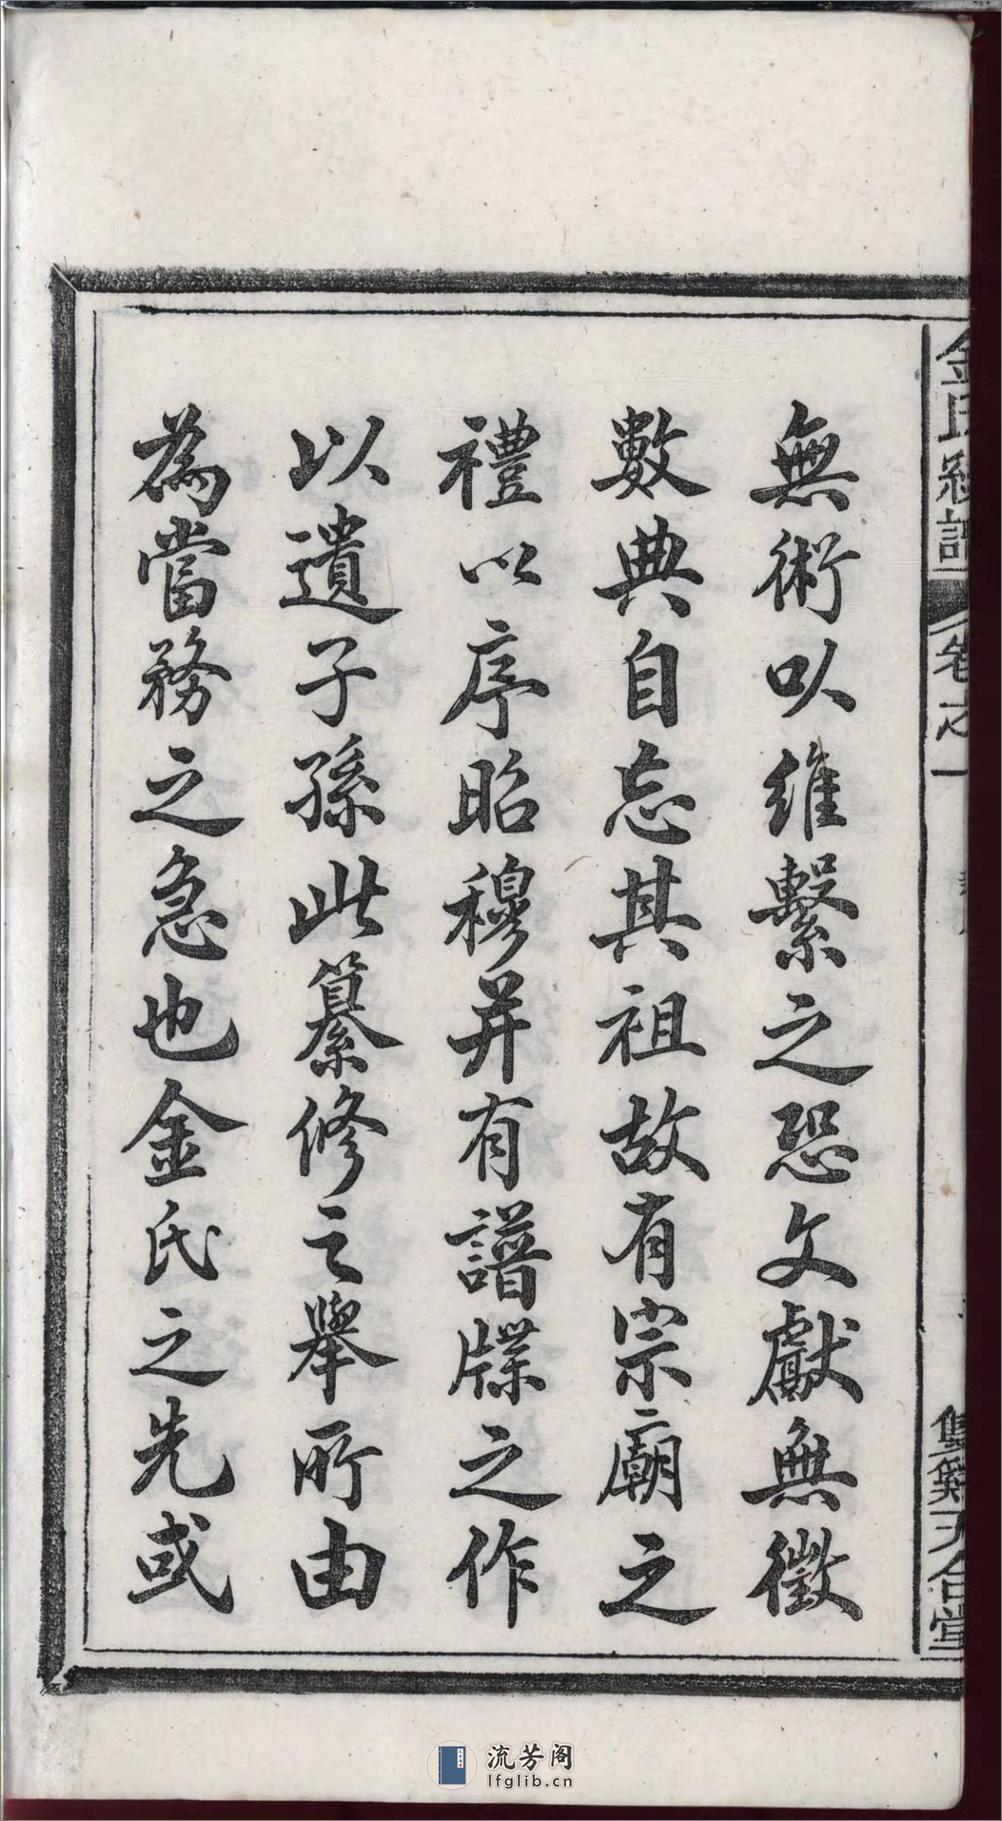 金氏纂譜 卷之一
無術以維繫之恐文獻無徵
數典自忘其祖故有宗廟之
禮以序昭穆并有譜牒之作
以遺子孫此纂修之舉所由
為當務之急也金氏之先或
流芳阁
lfglib.cn